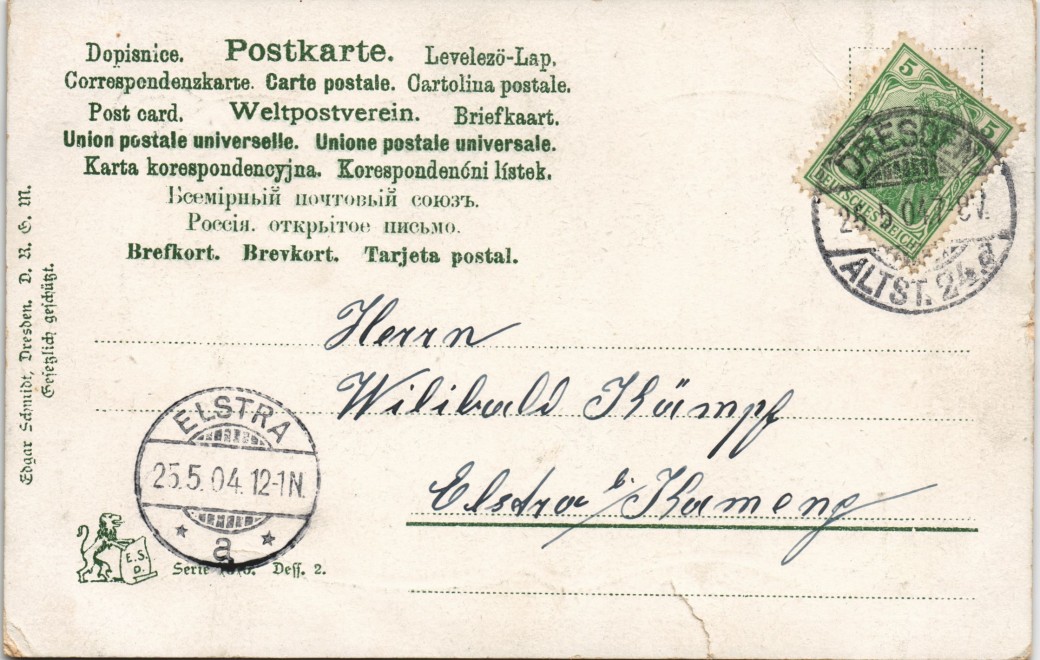 Dopisnice. Postkarte. Levelezö-Lap.
Correspondenzkarte. Carte postale. Cartolina postale.
Post card. Weltpostverein. Briefkaart.
Union postale universelle. Unione postale universale.
Karta korespondencyjna. Korespondenćni lístek.
Всемiрный почтовый союзъ.
Россiя. открытое письмо.
Brefkort. Brevkort. Tarjeta postal.
5 5
DEUTSCHES REICH
DRESDEN
25.5.04.7-8V.
ALTST. 24 d
Edgar Schmidt, Dresden. D. R. G. M.
Gesetzlich geschützt.
Herrn
Wilibald Kämpf
Elstra b/Kamenz
ELSTRA
25.5.04.12-1N.
a
E.S.
D.
Serie Dess. 2.